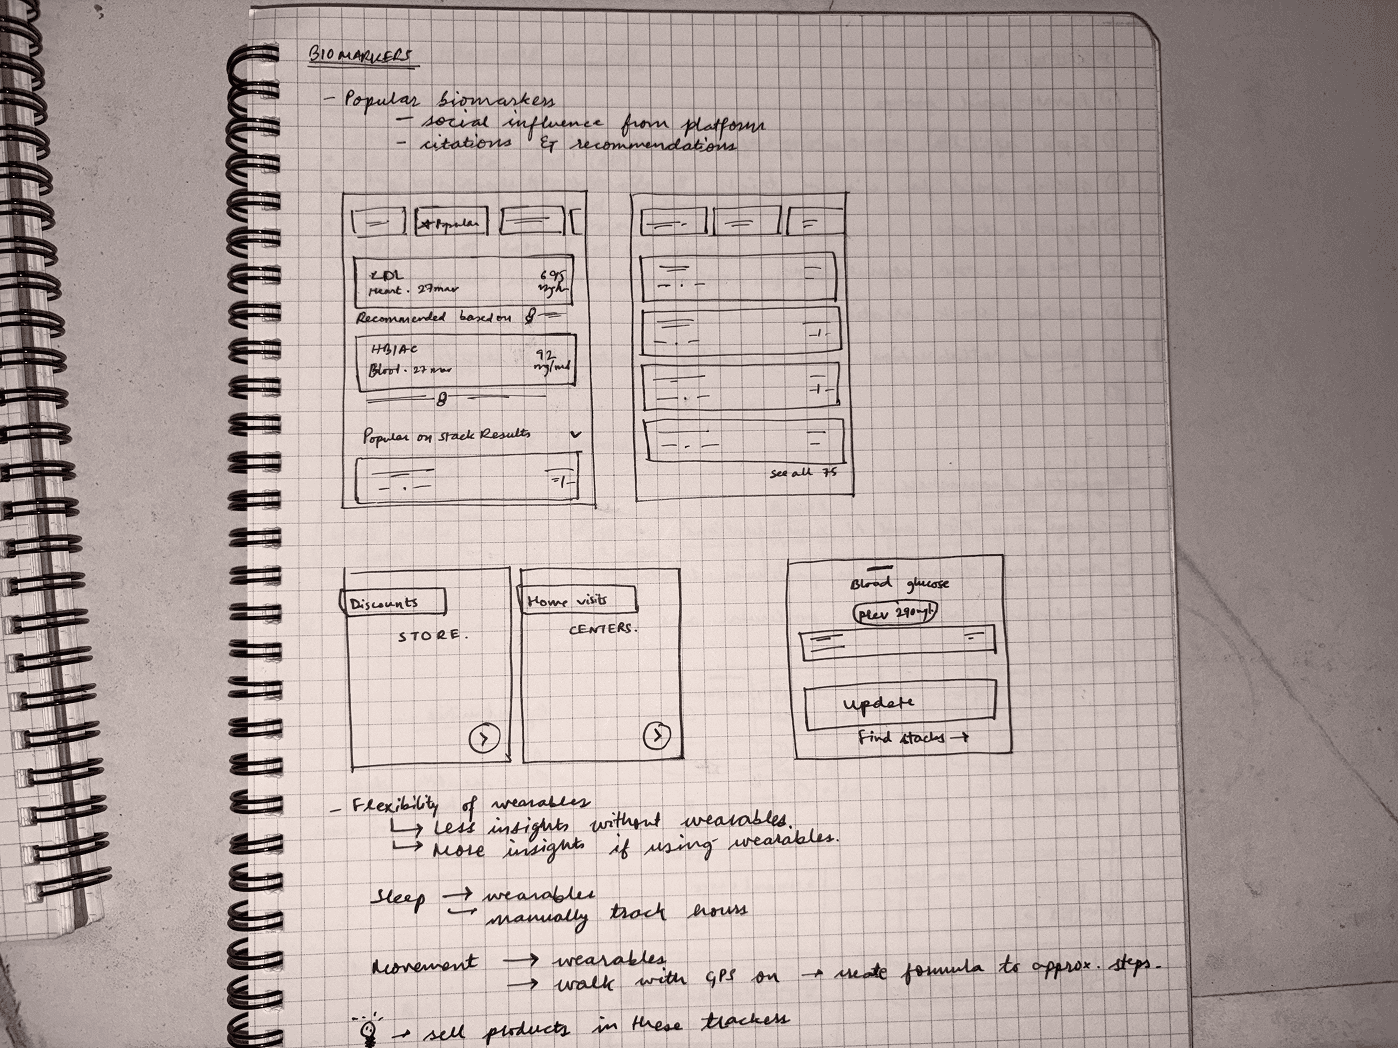 BIOMARKERS
- Popular biomarkers
- social influence from platform
- citations & recommendations
★Popular
LDL
Heart . 27 mar
695
Recommended based on
HB1AC
Blood . 27 mar
92
mg/ml
Popular on stack Results
see all 75
Discounts
STORE.
Home visits
CENTERS.
Blood glucose
Prev 290mg/
Update
Find stacks →
- Flexibility of wearables
↳ Less insights without wearables.
↳ More insights if using wearables.
Sleep → wearables
↳ manually track hours
Movement → wearables
→ walk with GPS on → create formula to approx. steps.
→ sell products in these trackers